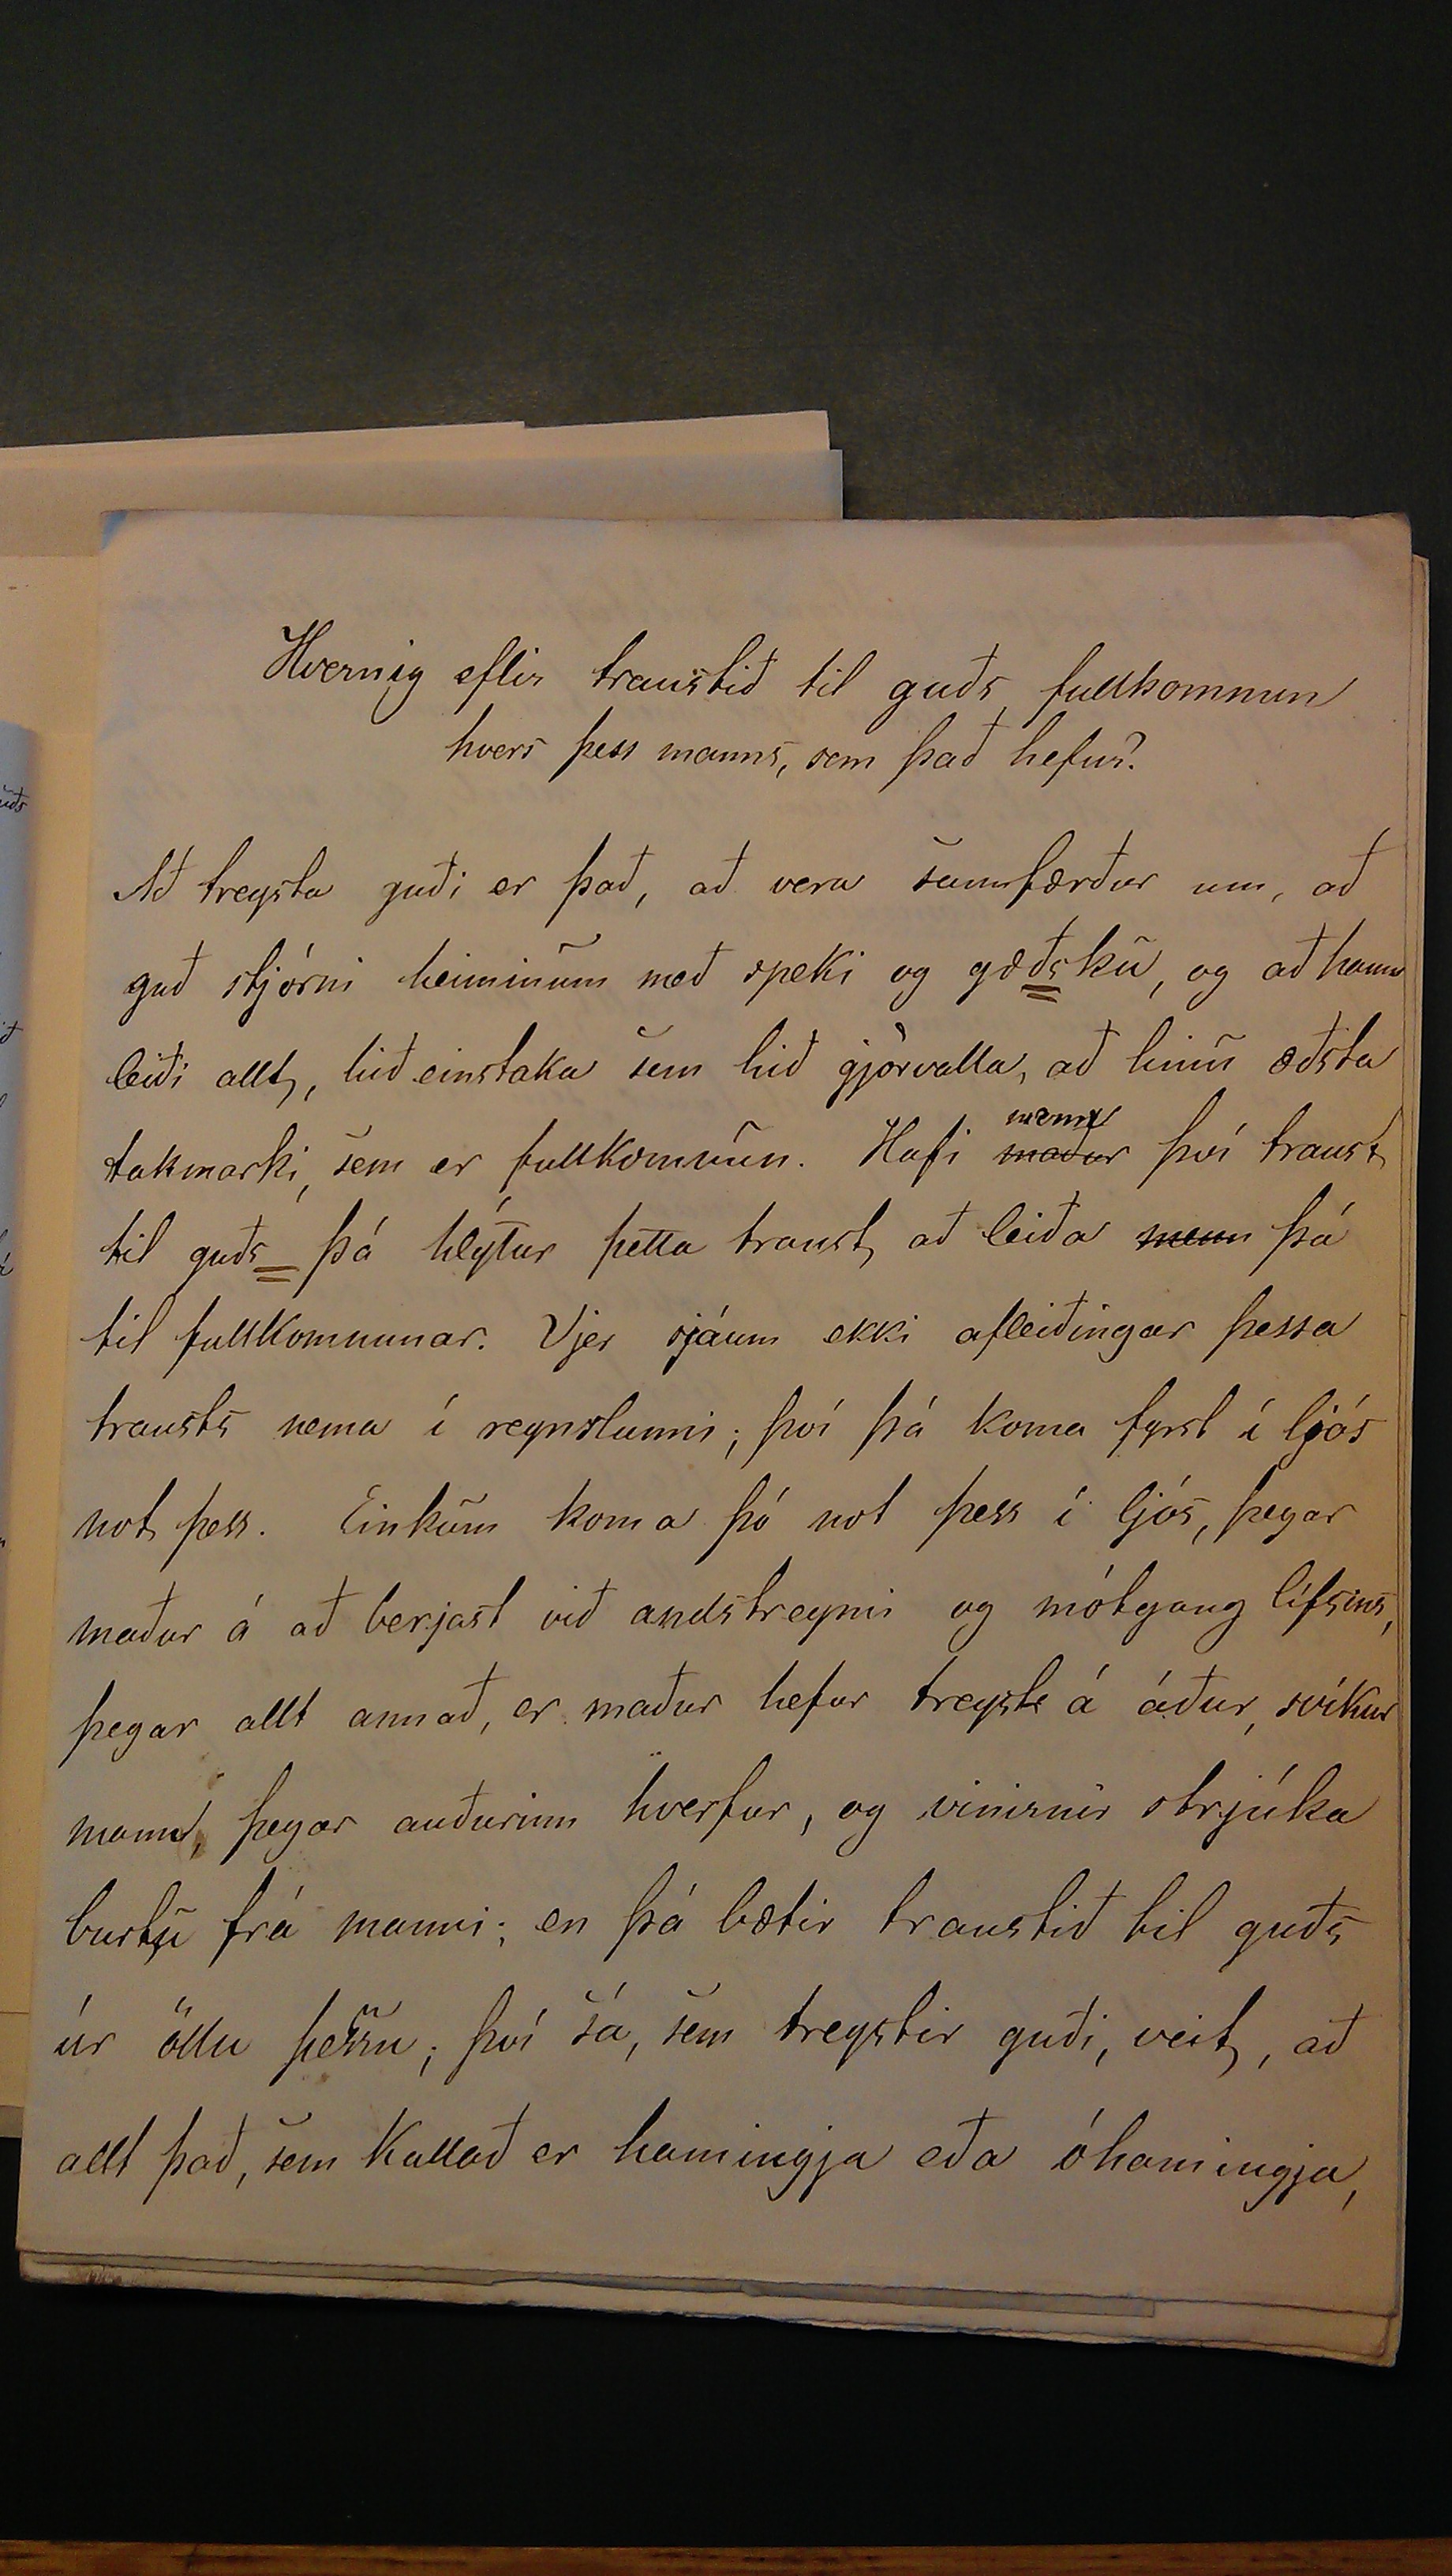 Hvernig eflir traustið til guðs fullkommun
hvers þess manns, sem það hefur?
Að treysta guði er það, að vera sannfærður um, að
guð stjórni heiminum með speki og gæðsku, og að hann
leiði allt, hið einstaka sem hið gjörvalla, að hinu æðsta
menn
takmarki, sem er fullkomnun. Hafi maður því traust
til guðs þá hlýtur þetta traust að leiða menn þá
til fullkomnunar. Vjer sjáum ekki afleiðingar þessa
trausts nema í reynslunni; því þá koma fyrst í ljós
not þess. Einkum koma þó not þess í ljós, þegar
maður á að berjast við andstreymi og mótgang lífsins,
þegar allt annað, er maður hefur treyst á áður, svíkur
mann, þegar auðurinn hverfur, og vinirnir strjúka
burtu frá manni; en þá bætir traustið til guðs
úr öllu þessu; því sá, sem treystir guði, veit, að
allt það, sem kallað er hamingja eða óhamingja,
uðs